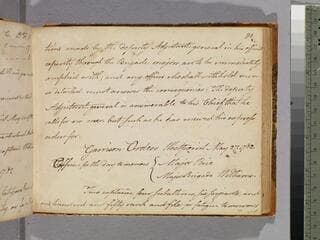 tions made by the deputy Adjutant general in his official
capacity through the Brigade majors are to be immediately
complied with, and any officer who shall withhold men
so detailed must answer the consequences. The deputy
Adjutant general is answerable to his Chief that he
calls for no men but such as he has received his express
orders for.
Garrison Orders Westpoint May 27th 1782
Officers for the day tomorrow { Major
Major Brigade
Two captains, four subalterns, six serjeants and
one hundred and fifty rank and file for fatigue tomorrow